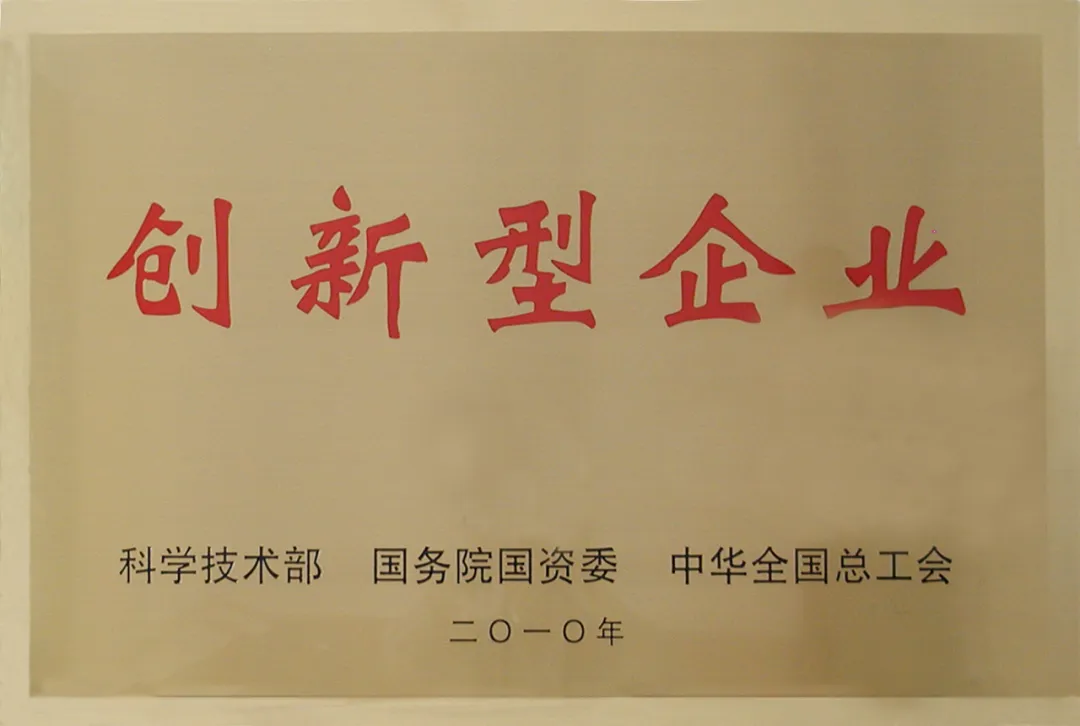 创新型企业
科学技术部 国务院国资委 中华全国总工会
二〇一〇年